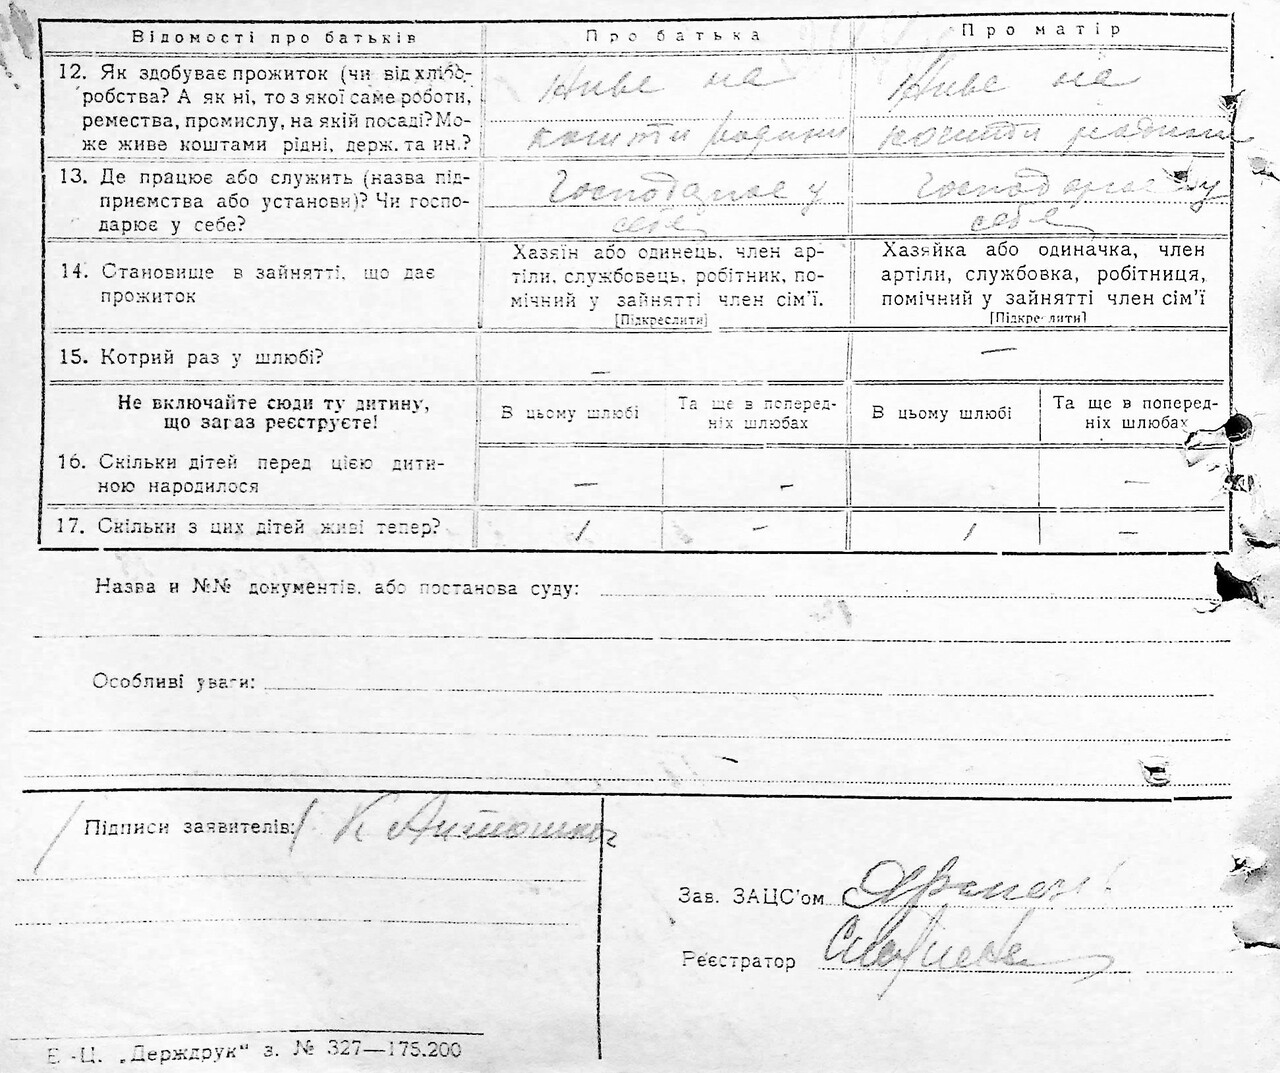 Відомості про батьків Про батька Про матір
12. Як здобуває прожиток (чи від хлібо-
робства? А як ні, то з якої саме роботи,
ремества, промислу, на якій посаді? Мо-
же живе коштами рідні, держ. та ин.?
Живе на
кошти родини
Живе на
кошти родини
13. Де працює або служить (назва під-
приємства або установи)? Чи госпо-
дарює у себе?
Господарює у
себе
Господарює у
себе
14. Становише в зайнятті, що дає
прожиток
Хазяїн або одинець, член ар-
тіли, службовець, робітник, по-
мічний у зайнятті член сім'ї.
[Підкреслити]
Хазяйка або одиначка, член
артіли, службовка, робітниця,
помічний у зайнятті член сім'ї
[Підкреслити]
15. Котрий раз у шлюбі? — —
Не включайте сюди ту дитину,
що зараз реєструєте!
В цьому шлюбі
Та ще в поперед-
ніх шлюбах
В цьому шлюбі
Та ще в поперед-
ніх шлюбах
16. Скільки дітей перед цією дити-
ною народилося
— — —
17. Скільки з цих дітей живі тепер? / — / —
Назва и №№ документів, або постанова суду:
Особливі уваги:
Підписи заявителів: К
Зав. ЗАЦС'ом
Реєстратор
Е.-Ц. „Держдрук“ з. № 327—175.200